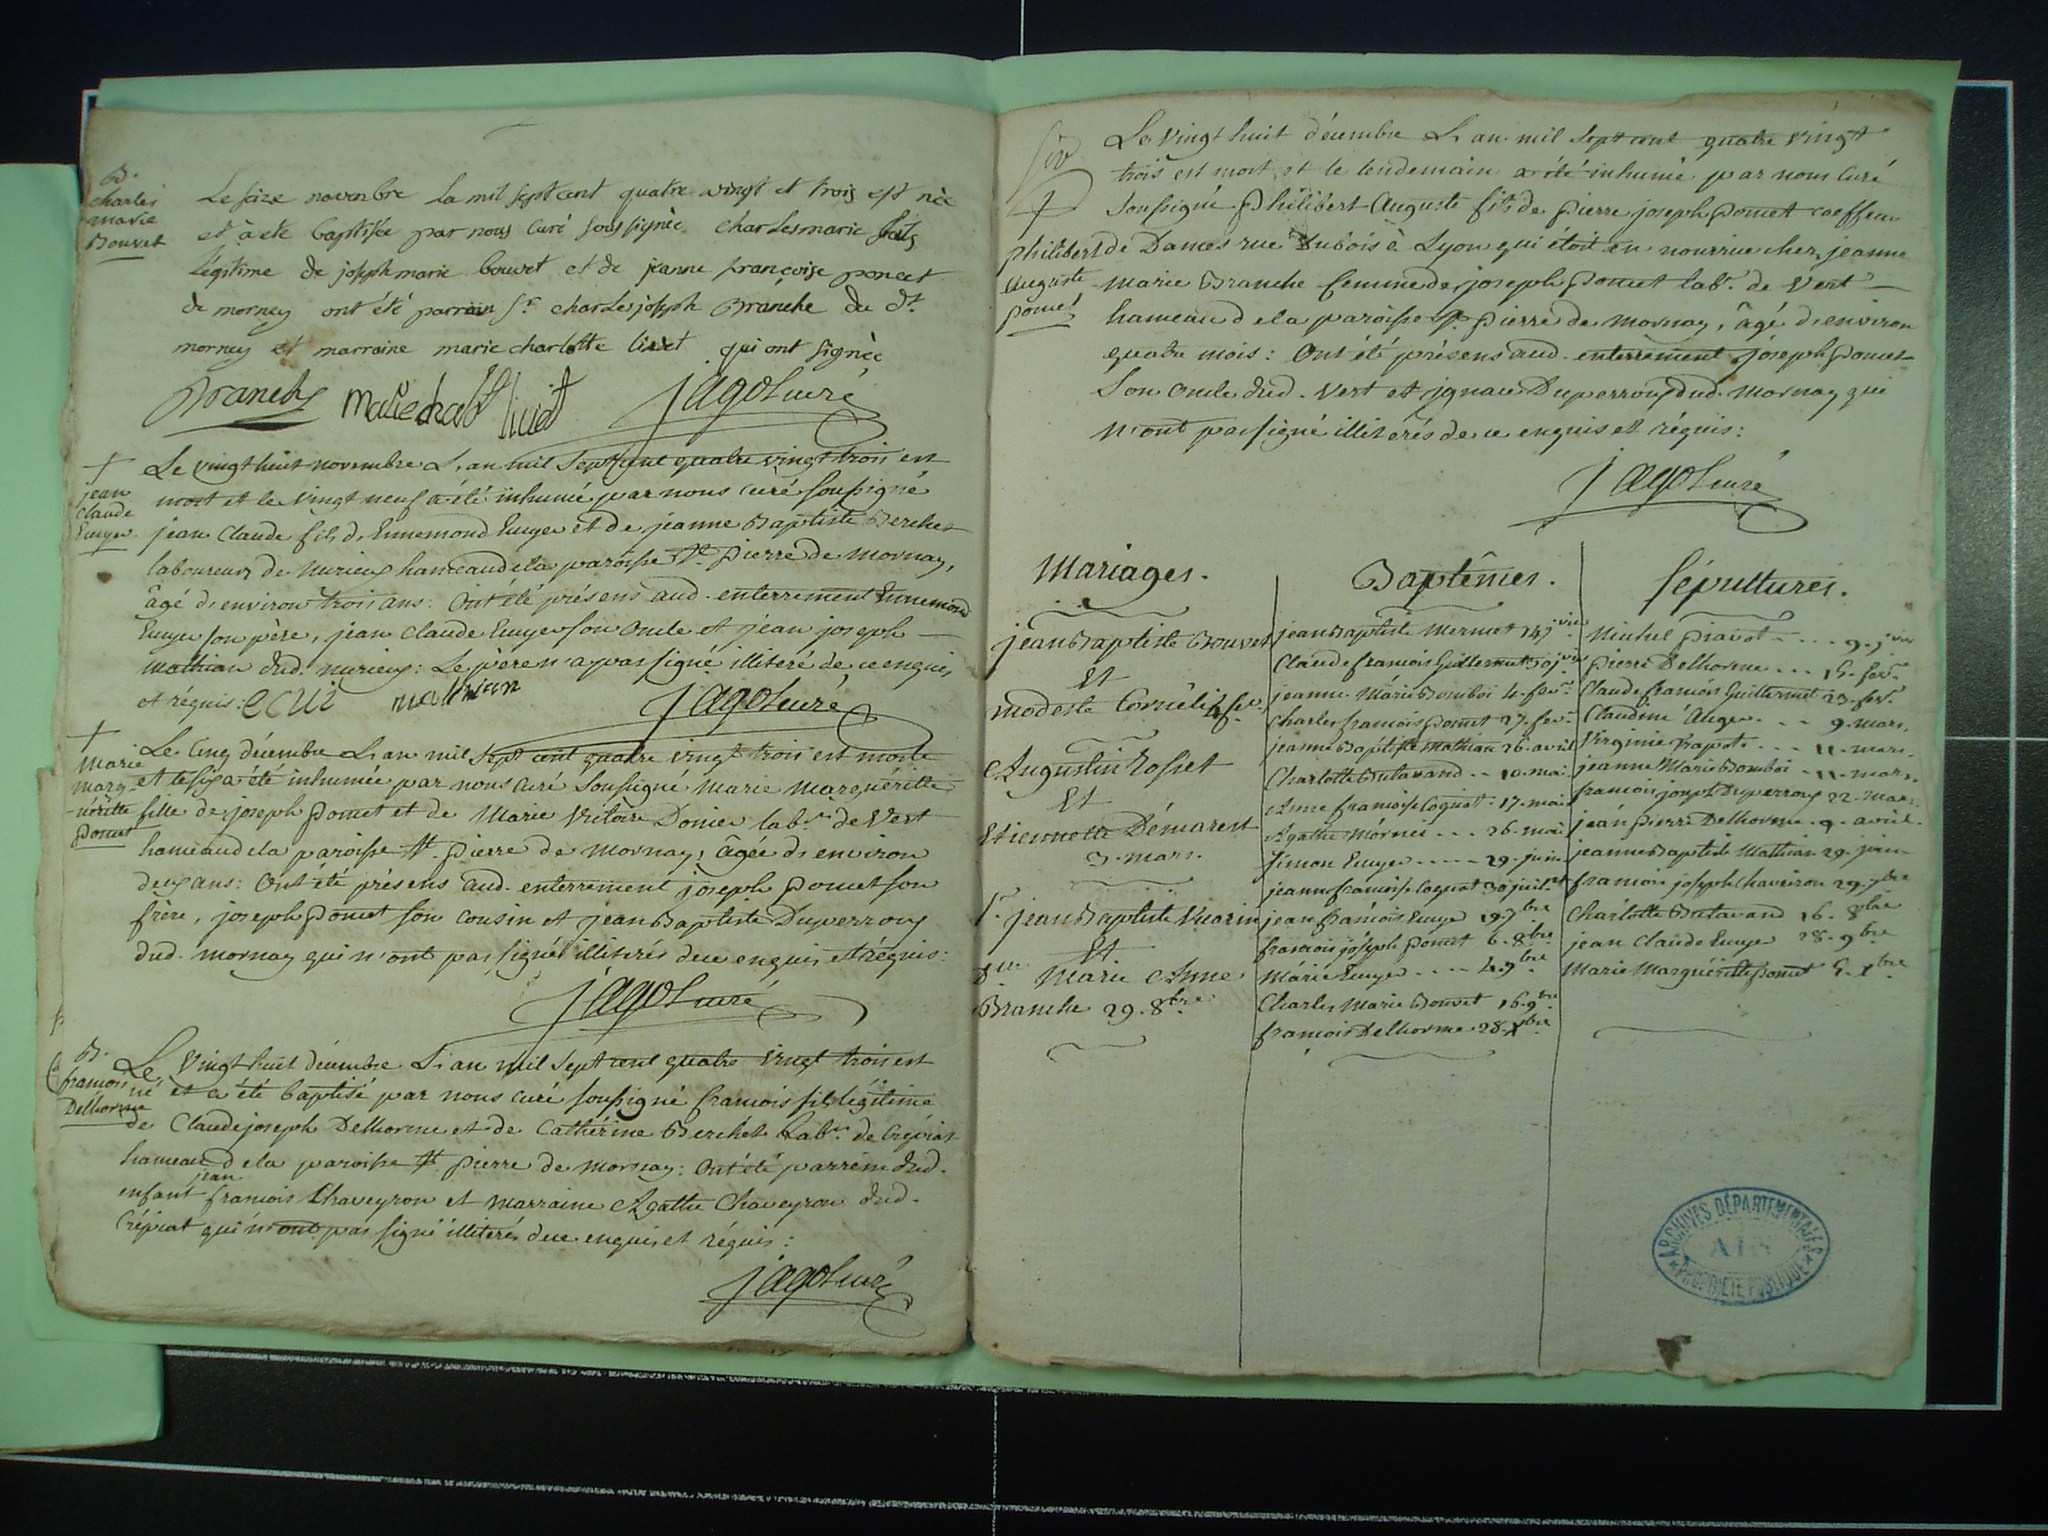 B.
charles
marie
Bouvet
Le seize novenbre la mil sept cent quatre vingt et trois est née
et à ete baptisée par nous curé soussignée charles marie fils
légitime de joseph marie bouvet et de jeanne françoise poncet
de morney ont été parrain Sr. charles joseph Branche du dt.
morney et marraine marie charlotte livet qui ont signée
Branche marie charlotte livet jagot curé
+
jean
claude
Ecuyer
Le vingt huit novembre L'an mil sept cent quatre vingt trois est
mort et le vingt neuf a été inhumé par nous curé soussigné
jean Claude fils d'Ennemond Ecuyer et de jeanne Baptiste Berchet
laboureurs de Nurieux hameau de la paroisse St. pierre de Mornay,
âgé d'environ trois ans: Ont été présens aud. enterrement Ennemond
Ecuyer son père, jean Claude Ecuyer son Oncle et jean joseph
Mathian dud. nurieux: Le père n'a pas signé illiteré de ce enquis,
et réquis: ecuie mathian jagot curé
+
Marie
Marg-
-uéritte
poncet
Le Cinq décembre L'an mil sept cent quatre vingt trois est morte
et le six a été inhumée par nous curé soussigné Marie Marguéritte
fille de joseph poncet et de Marie Victoire Donier labrs. de Vert
hameau de la paroisse St. pierre de Mornay, âgée d'environ
deux ans: Ont été présens aud. enterrement joseph poncet son
frère, joseph poncet son cousin et jean Baptiste Duperroux
dud. mornay qui n'ont pas signé illiterés de ce enquis et réquis:
jagot curé
B.
francois
Delhorme
Le Vingt huit décembre L'an mil sept cent quatre vingt trois est
né et a été baptisé par nous curé soussigné francois fils légitime
de Claude joseph Delhorme et de Cathérine Berchet Labrs. de Crépiat
hameau de la paroisse St. pierre de Mornay: Ont été parrein dud.
jean
enfant francois Chaveyron et marraine Agathe Chaveyron dud.
Crépiat qui n'ont pas signé illiterés de ce enquis et réquis:
jagot curé
+
philibert
auguste
poncet
Le Vingt huit décembre L'an mil sept cent quatre vingt
trois est mort et le lendemain a été inhumé par nous curé
soussigné philibert Auguste fils de pierre joseph poncet coeffeur
de Dames rue Dubois à Lyon qui étoit en nourrice chez jeanne
Marie Branche femme de joseph poncet labr. de Vert
hameau de la paroisse St. pierre de Mornay, âgé d'environ
quatre mois: Ont été présens aud. enterrement joseph poncet
son oncle dud. Vert et ignace Duperroux dud. Mornay qui
n'ont pas signé illiterés de ce enquis et réquis:
jagot curé
Mariages.
jean Baptiste Bouvet
Et
modeste Cornélie 4 fev.
Augustin Rosset
Et
Etiennette Démarest
3. mars.
Sr. jean Baptiste Vuarin
Et
Dlle. Marie Anne
Branche 29. 8bre.
Baptêmes.
jean Baptiste Mermet 14 jvier
Claude francois Guillermet 30 jvier
jeanne Marie Bomboi 4. fevr.
Charles francois poncet 27. fevr.
jeanne Baptiste Mathian 26. avril
Charlotte Butavand .. 10. mai
Anne francoise Coquet. 17. mai
Agathe Mornié ... 26. mai
Simon Ecuyer ..... 29. juin
jeanne francoise Coquet 30 juillet
jean francois Ecuyer 19. 7bre
francois joséph poncet 6. 8bre
Marie Ecuyer .... 4. 9bre
Charles Marie Bouvet 16. 9bre
francois Delhorme. 28. Xbre
Sépultures.
Michel piavot .... 9. jvier
pierre Delhorme ... 15. fevr.
Claude francois Guillermet 23. fevr.
Claudine Auger ... 9. mars.
Virginie trapote ... 11. mars.
jeanne Marie Bomboi .. 11. mars.
francois joseph Duperroux 22. mars.
jean pierre Delhorme. 9. avril.
jeanne Baptiste Mathian 29. juin
francois joseph Chaveiron 29. 7bre
Charlotte Butavand 16. 8bre
jean Claude Ecuyer 28. 9bre
Marie Marguéritte poncet 5. Xbre
ARCHIVES DÉPARTEMENTALES
AIN
PROPRIÉTÉ PUBLIQUE